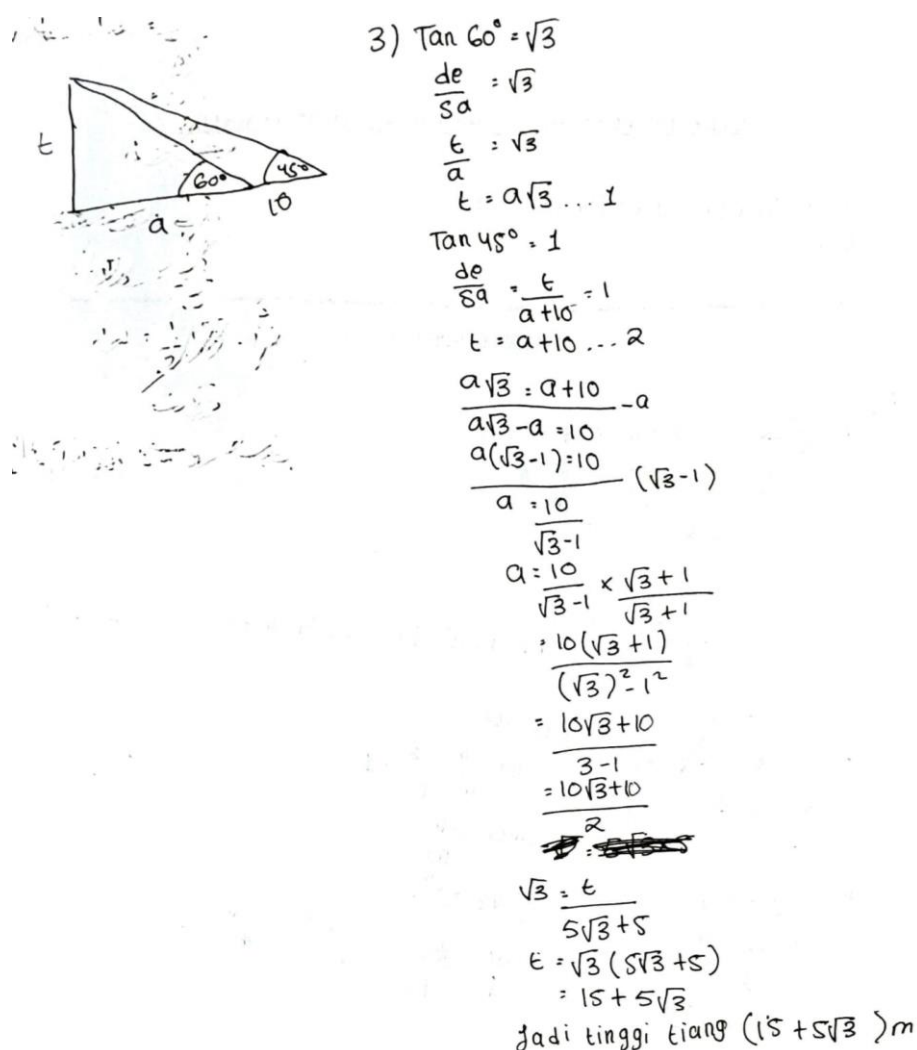 t
60°
45°
a
10
3) Tan 60° = √3
de/sa = √3
t/a = √3
t = a√3 ... 1
Tan 45° = 1
de/sa = t/(a+10) = 1
t = a+10 ... 2
a√3 = a+10
-a
a√3 - a = 10
a(√3-1) = 10
(√3-1)
a = 10/(√3-1)
a = 10/(√3-1) × (√3+1)/(√3+1)
= 10(√3+1)/((√3)²-1²)
= (10√3+10)/(3-1)
= (10√3+10)/2
√3 = t/(5√3+5)
t = √3(5√3+5)
= 15+5√3
Jadi tinggi tiang (15+5√3)m